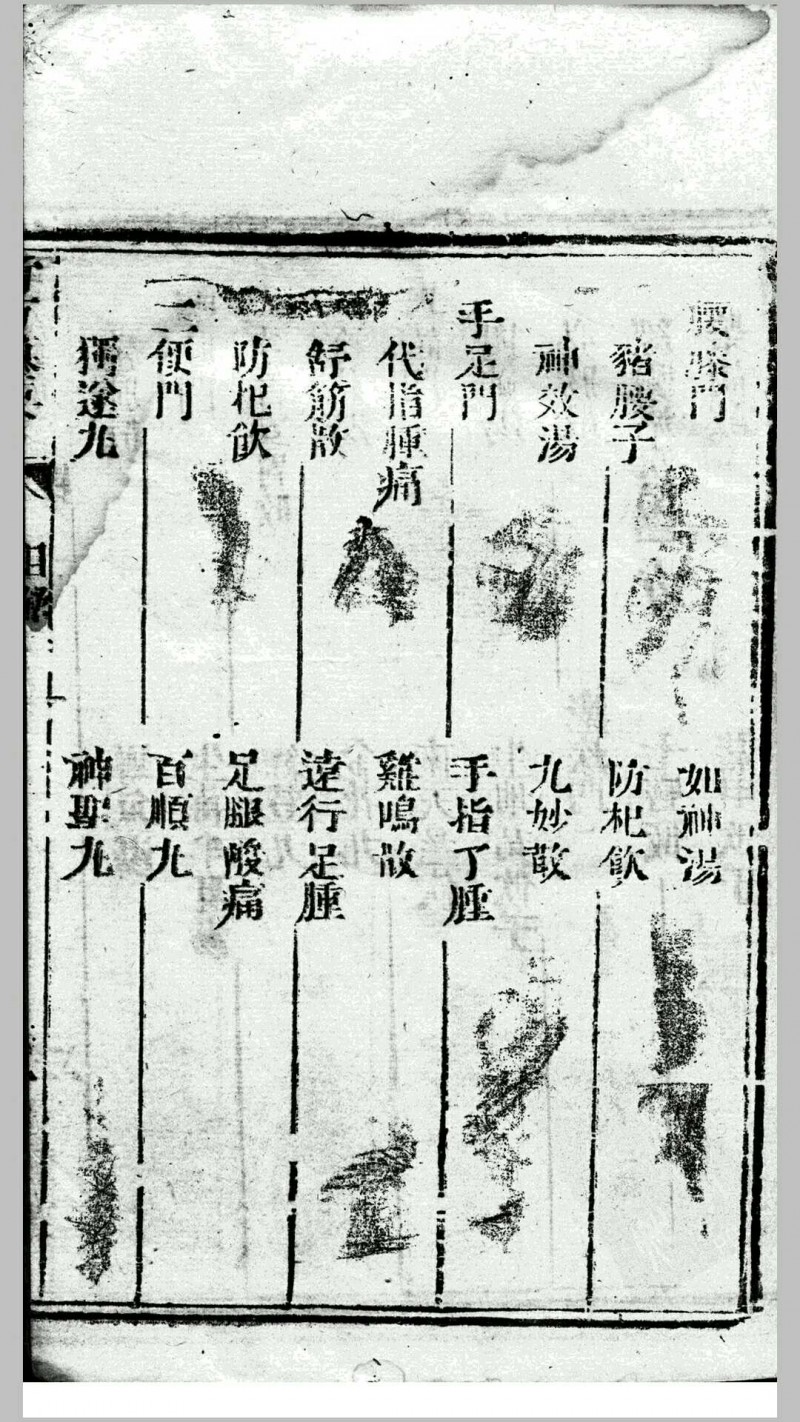 腰㾡門
豬腰子
如神湯
防杞飲
神效湯
九妙散
手足門
手指丫腫
代指腫痛
雞鳴散
舒筋散
遠行足腫
防杞飲
足腿酸痛
二便門
百順丸
獨逵丸
神聖丸
目錄